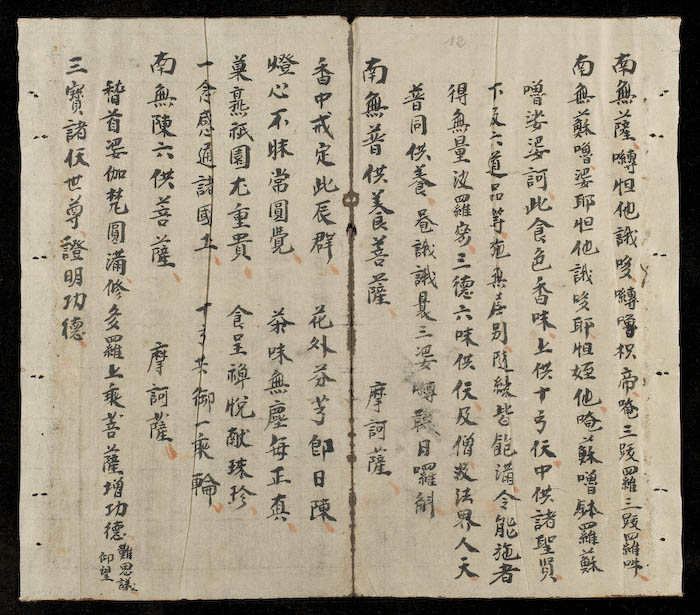 12
南無薩嚩怛他誐哆嚩嚕枳帝唵三跋羅三跋羅吽
南無蘇嚕婆耶怛他誐哆耶怛姪他唵蘇嚕鉢羅蘇
嚕娑婆訶此食色香味上供十方仸中供諸聖賢
下及六道品等施無差别隨緣皆飽滿令能施者
得無量波羅蜜三德六味供仸及僧及法界人天
普同供養 唵誐誐曩三婆嚩韈日囉斛
南無普供養菩薩 摩訶薩
香中戒定此辰群 花外芬芳即日陳
燈心不昧常圓覺 茶味無塵每正真
菓 祇園尤重貴 食呈禪悅献珠珍
一念感通諸國土 十方共御一乘輪
南無陳六供菩薩 摩訶薩
稽首婆伽梵圓滿修多羅上乘菩薩增功德難思議
仰望
三寶諸仸世尊證明功德